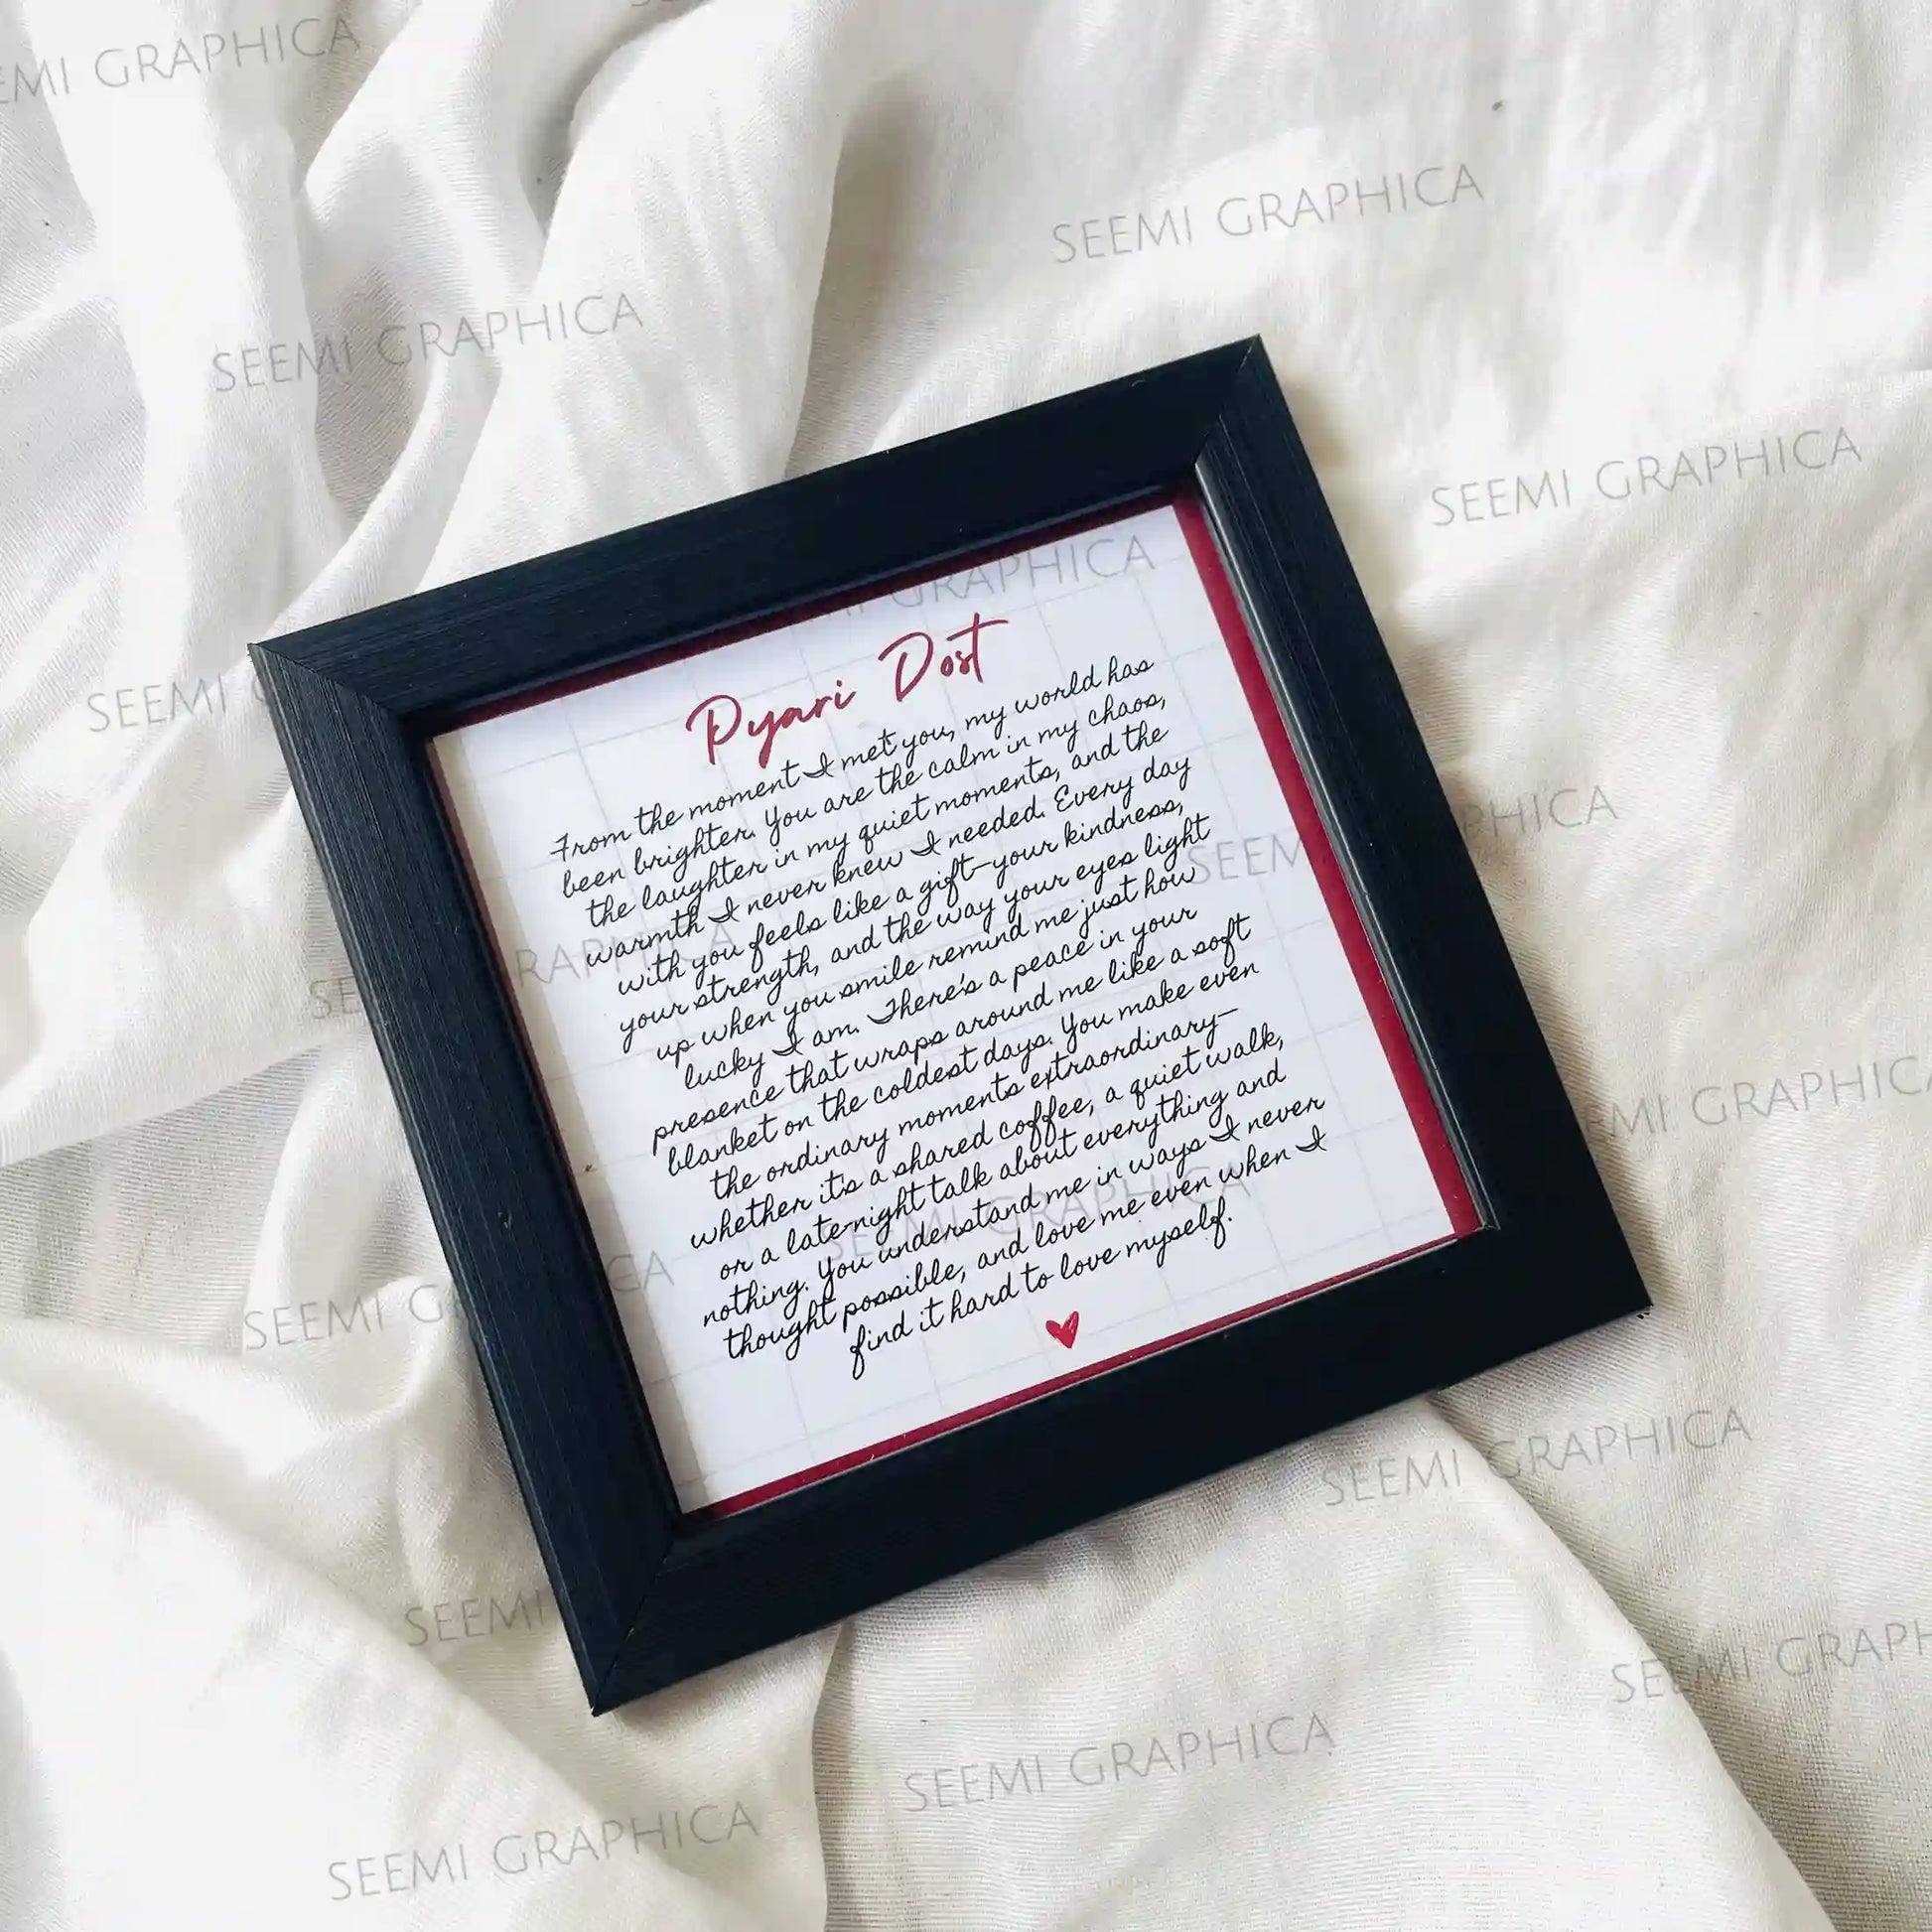 SEEMI GRAPHICA
SEEMI GRAPHICA
SEEMI GRAPHICA
SEEMI GRAPHICA
SEEMI
GRAPHICA
Pyari Dost
From the moment I met you, my world has
been brighter. You are the calm in my chaos,
the laughter in my quiet moments, and the
warmth I never knew I needed. Every day
with you feels like a gift—your kindness,
your strength, and the way your eyes light
up when you smile remind me just how
lucky I am. There's a peace in your
presence that wraps around me like a soft
blanket on the coldest days. You make even
the ordinary moments extraordinary—
whether it's a shared coffee, a quiet walk,
or a late-night talk about everything and
nothing. You understand me in ways I never
thought possible, and love me even when I
find it hard to love myself.
SEEMI GRAPHICA
SEEMI GRAPHICA
SEEMI GRAPHICA
SEEMI
SEEMI GRAPHICA
SEEMI GRAPHICA
SEEMI GRAPHICA